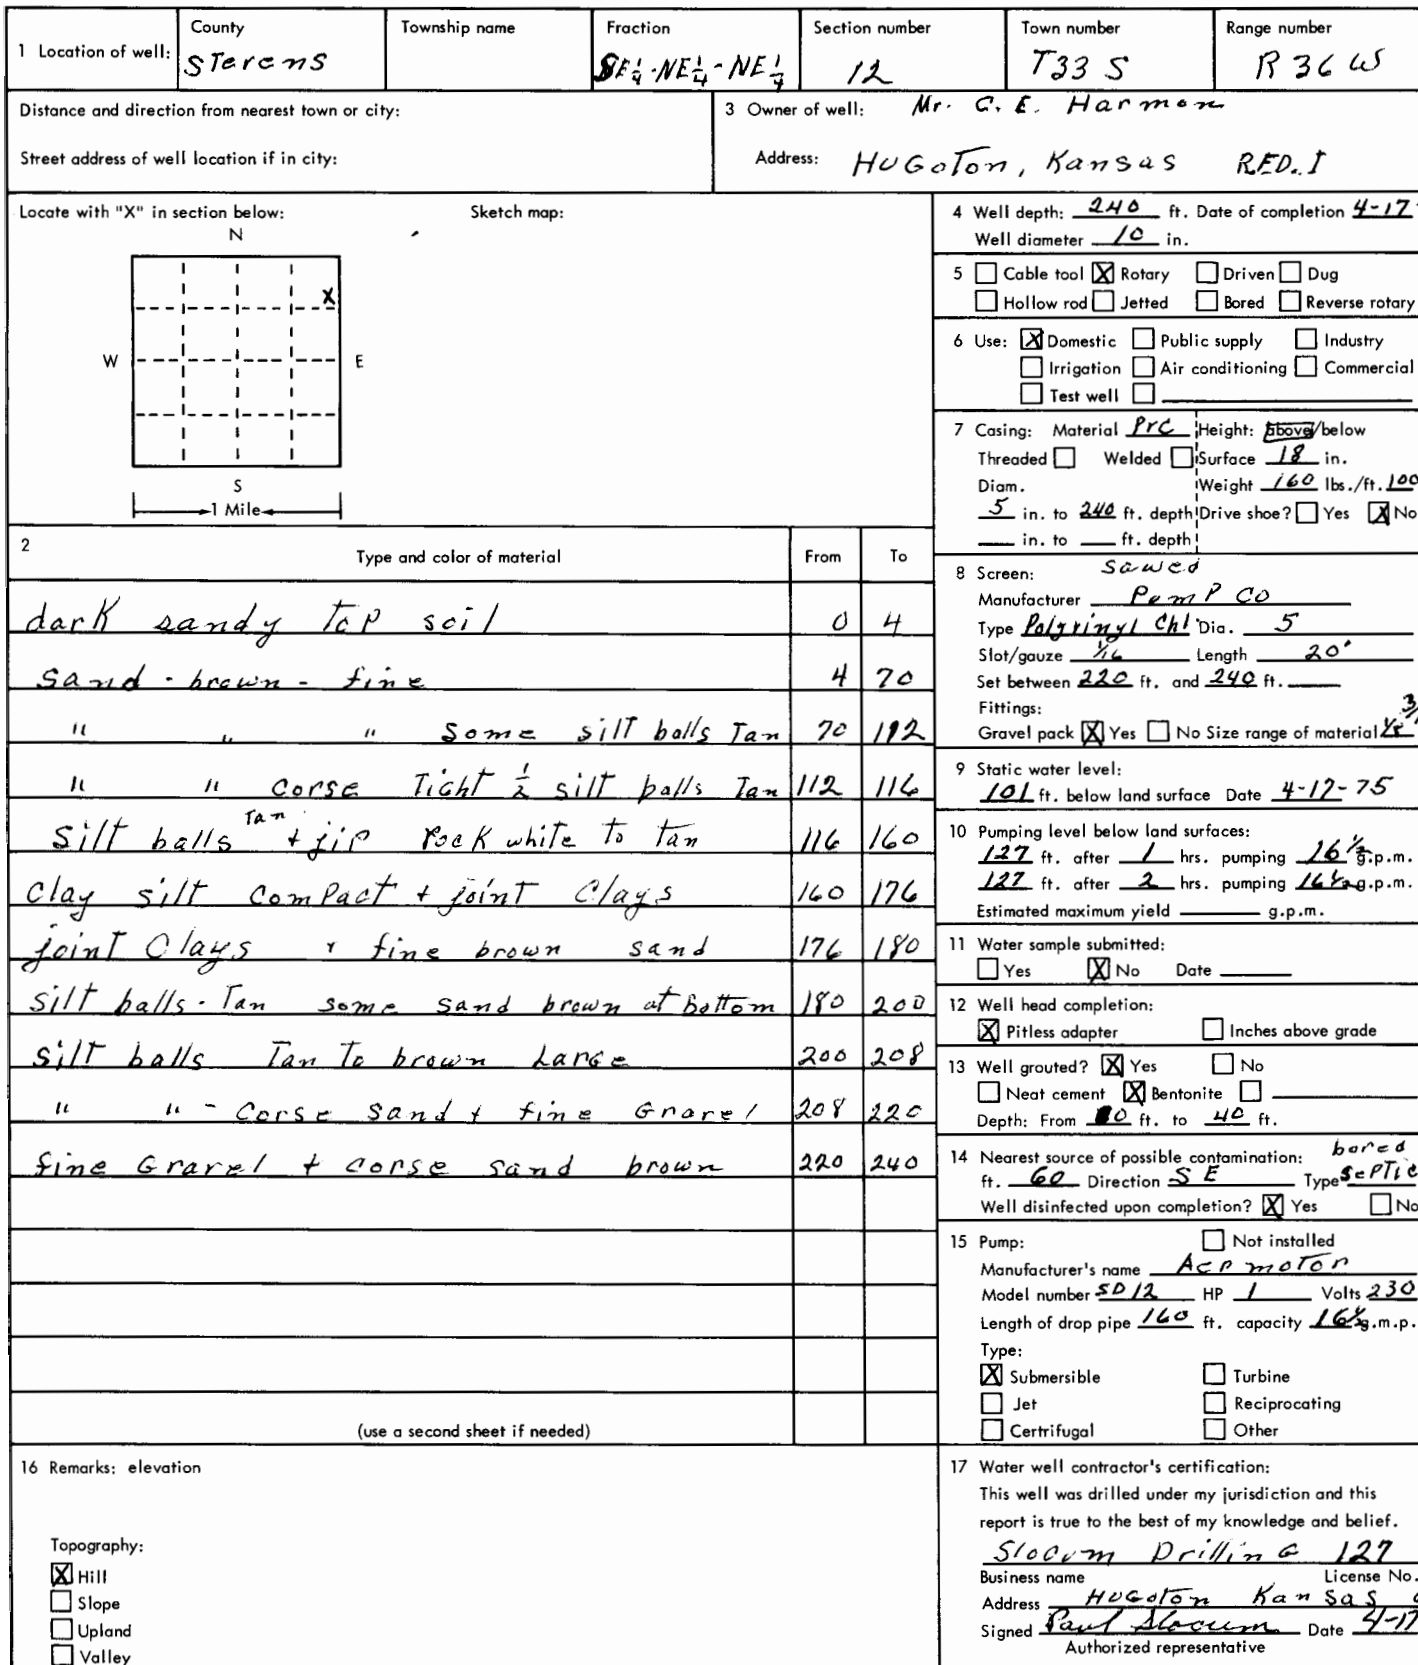 1 Location of well:
County
Sterens
Township name
Fraction
SE 1/4 - NE 1/4 - NE 1/4
Section number
12
Town number
T33 S
Range number
R 36 W
Distance and direction from nearest town or city:
Street address of well location if in city:
3 Owner of well: Mr. C. E. Harmon
Address: HUGOTON, Kansas
Locate with "X" in section below:
Sketch map:
N
X
W
E
S
1 Mile
2
Type and color of material
From
To
dark sandy top soil 0 4
Sand - brown - fine 4 70
" " " Some silt balls Tan 70 112
" " corse Tight 1/2 silt balls Tan 112 116
Silt balls Tan + jip rock white to Tan 116 160
Clay silt ComPact + joint Clays 160 176
joint Clays + fine brown sand 176 180
Silt balls - Tan some sand brown at bottom 180 200
Silt balls Tan To brown Large 200 208
" " - Corse sand + fine Gravel 208 220
fine Gravel + corse sand brown 220 240
(use a second sheet if needed)
4 Well depth: 240 ft. Date of completion 4-17
Well diameter 10 in.
5 Cable tool X Rotary Driven Dug
Hollow rod Jetted Bored Reverse rotary
6 Use: X Domestic Public supply Industry
Irrigation Air conditioning Commercial
Test well
7 Casing: Material PVC Height: above/below
Threaded Welded Surface 18 in.
Diam. Weight 160 lbs./ft. 100
5 in. to 240 ft. depth Drive shoe? Yes X No
in. to ft. depth
8 Screen: Sawed
Manufacturer PumP CO
Type Polyvinyl Chl Dia. 5
Slot/gauze 1/16 Length 20'
Set between 220 ft. and 240 ft.
Fittings:
Gravel pack X Yes No Size range of material
9 Static water level:
101 ft. below land surface Date 4-17-75
10 Pumping level below land surfaces:
127 ft. after 1 hrs. pumping 16 1/2 g.p.m.
127 ft. after 2 hrs. pumping 16 1/2 g.p.m.
Estimated maximum yield g.p.m.
11 Water sample submitted:
Yes X No Date
12 Well head completion:
X Pitless adapter Inches above grade
13 Well grouted? X Yes No
Neat cement X Bentonite
Depth: From 0 ft. to 40 ft.
14 Nearest source of possible contamination: bored
ft. 60 Direction S E Type SePTic
Well disinfected upon completion? X Yes No
15 Pump: Not installed
Manufacturer's name Acr motor
Model number SD12 HP 1 Volts 230
Length of drop pipe 160 ft. capacity 16 1/2 g.m.p.
Type:
X Submersible Turbine
Jet Reciprocating
Certrifugal Other
16 Remarks: elevation
Topography:
X Hill
Slope
Upland
Valley
17 Water well contractor's certification:
This well was drilled under my jurisdiction and this
report is true to the best of my knowledge and belief.
Slocum Drilling 127
Business name License No.
Address HUGOTON Kansas
Signed Paul Slocum Date 4-17
Authorized representative